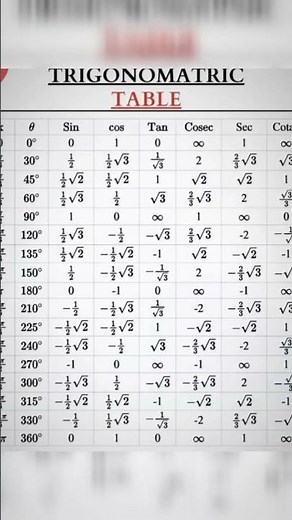 TRIGONOMATRIC
TABLE
θ Sin cos Tan Cosec Scc Cota
0° 0 1 0 ∞ 1 ∞
30° 1/2 1/2√3 1/√3 2 2/3√3
45° 1/2√2 1/2√2 1 √2 √2 1
60° 1/2√3 1/2 √3 2/3√3 2 √3/3
90° 1 0 ∞ 1 ∞ 0
120° 1/2√3 -1/2 -√3 2/3√3 -2
135° 1/2√2 -1/2√2 -1 √2 -√2 -1
150° 1/2 -1/2√3 -1/√3 2 -2/3√3
180° 0 -1 0 ∞ -1 ∞
210° -1/2 -1/2√3 1/√3 -2 -2/3√3
225° -1/2√2 -1/2√2 1 -√2 -√2 1
240° -1/2√3 -1/2 √3 -2/3√3 -2 √3/3
270° -1 0 ∞ -1 ∞
300° -1/2√3 1/2 -√3 -2/3√3 2
315° -1/2√2 1/2√2 -1 -√2 √2 -1
330° -1/2 1/2√3 -1/√3 -2 2/3√3
360° 0 1 0 ∞ 1 ∞